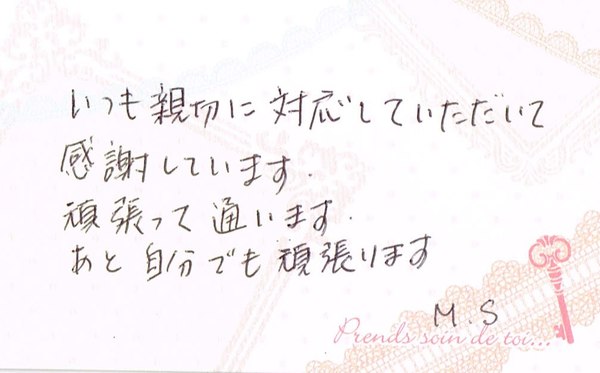 いつも親切に対応していただいて
感謝しています.
頑張って通います.
あと自分でも頑張ります
M.S
Prends soin de toi...